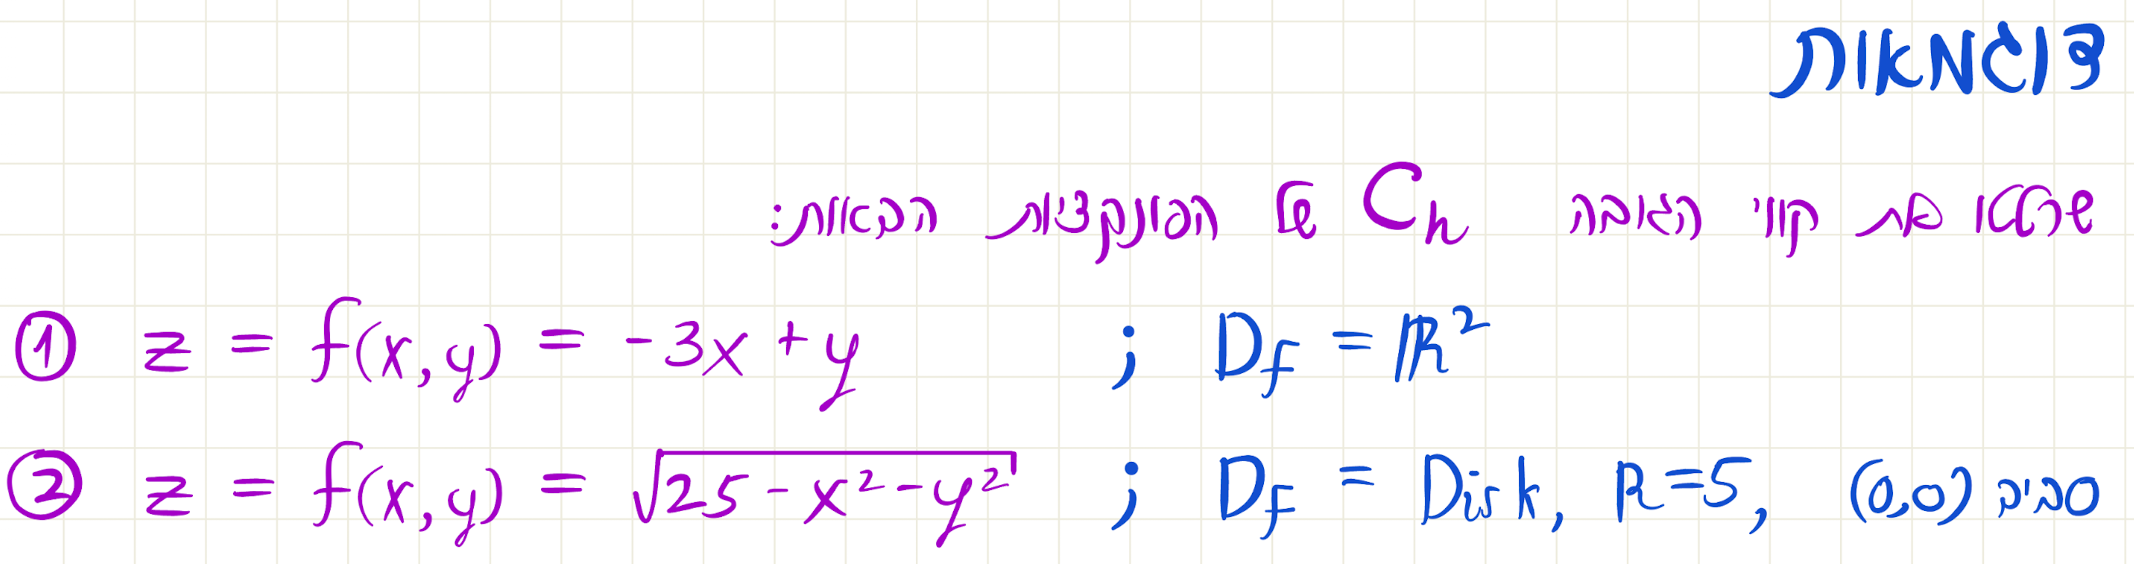 דוגמאות
שרטטו את קווי הגובה C_h של הפונקציות הבאות:
① z = f(x,y) = -3x + y ; D_f = ℝ²
② z = f(x,y) = √(25-x²-y²) ; D_f = Disk, R=5, (0,0) סביב